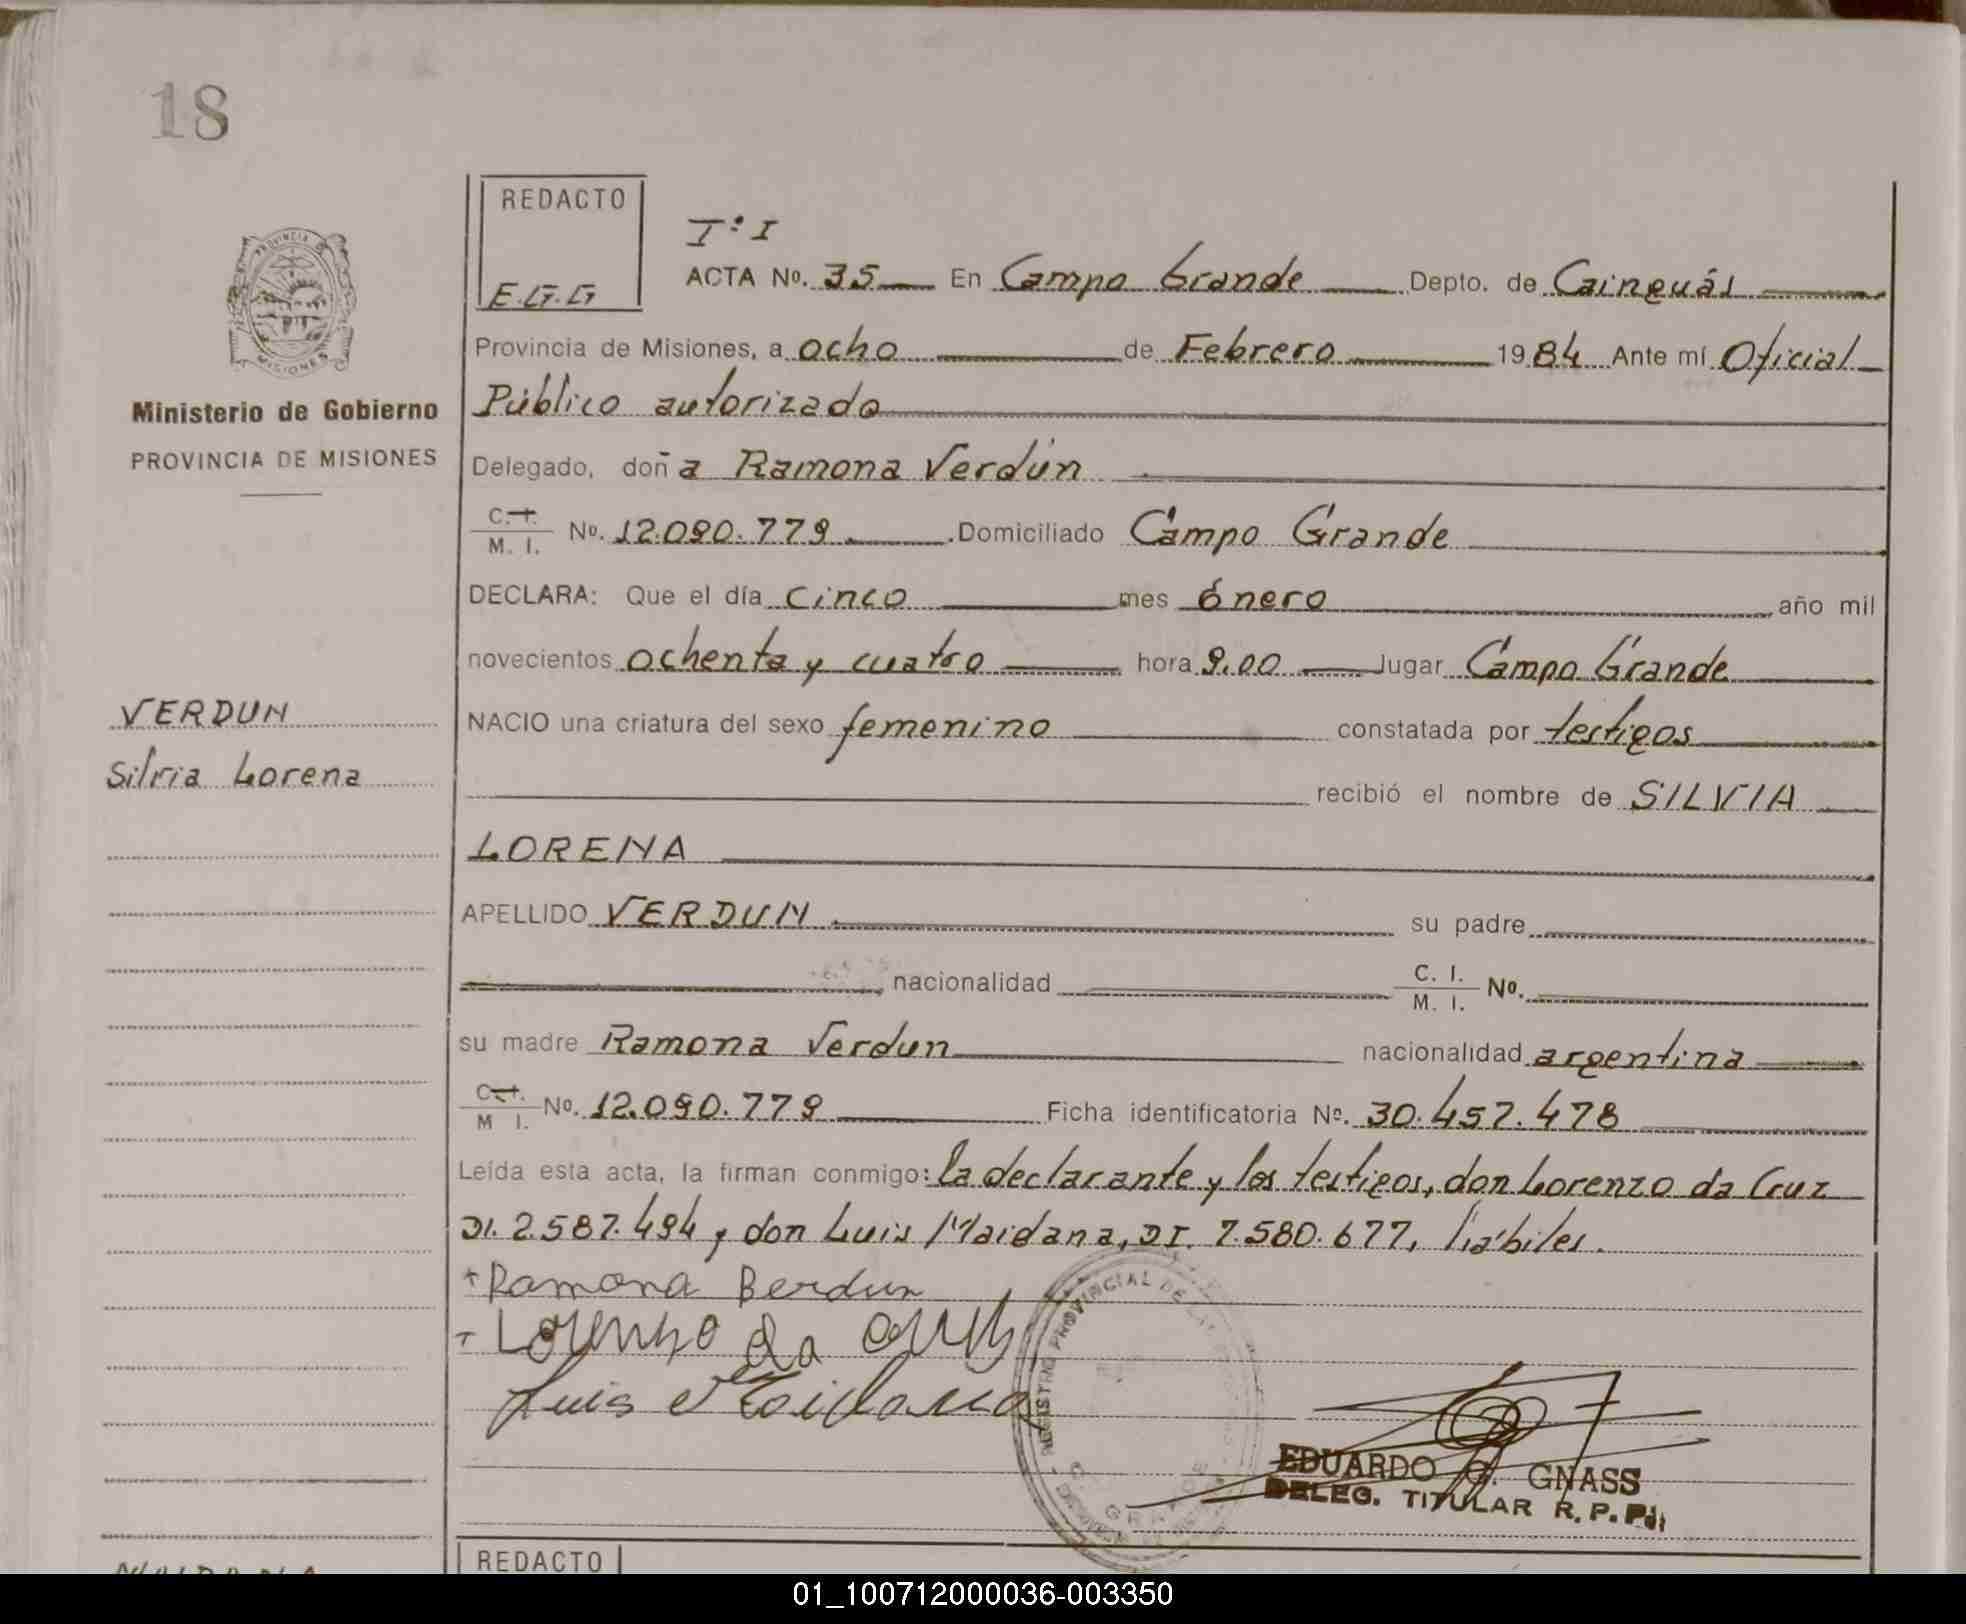 18
REDACTO
E.G.G
Tº I
ACTA Nº. 35 En Campo Grande Depto. de Cainguás
PROVINCIA DE MISIONES
Provincia de Misiones, a ocho de Febrero 1984 Ante mí Oficial
Ministerio de Gobierno
PROVINCIA DE MISIONES
Público autorizado
Delegado, doña Ramona Verdún
C. I.
M. I. Nº. 12.090.779 . Domiciliado Campo Grande
DECLARA: Que el día cinco mes Enero año mil
novecientos ochenta y cuatro hora 9.00 lugar Campo Grande
VERDUN
Silvia Lorena
NACIO una criatura del sexo femenino constatada por testigos
recibió el nombre de SILVIA
LORENA
APELLIDO VERDUN su padre
nacionalidad C. I.
M. I. Nº.
su madre Ramona Verdun nacionalidad argentina
C. I.
M I. Nº. 12.090.779 Ficha identificatoria Nº. 30.457.478
Leída esta acta, la firman conmigo: la declarante y los testigos, don Lorenzo da Cruz
DI. 2.587.494 y don Luis Maidana, DI. 7.580.677, hábiles.
+ Ramona Berdun
+ Lorenzo da Cruz
Luis Maidana
REGISTRO PROVINCIAL DE
EDUARDO G. GNASS
DELEG. TITULAR R. P. P.
REDACTO
01_100712000036-003350